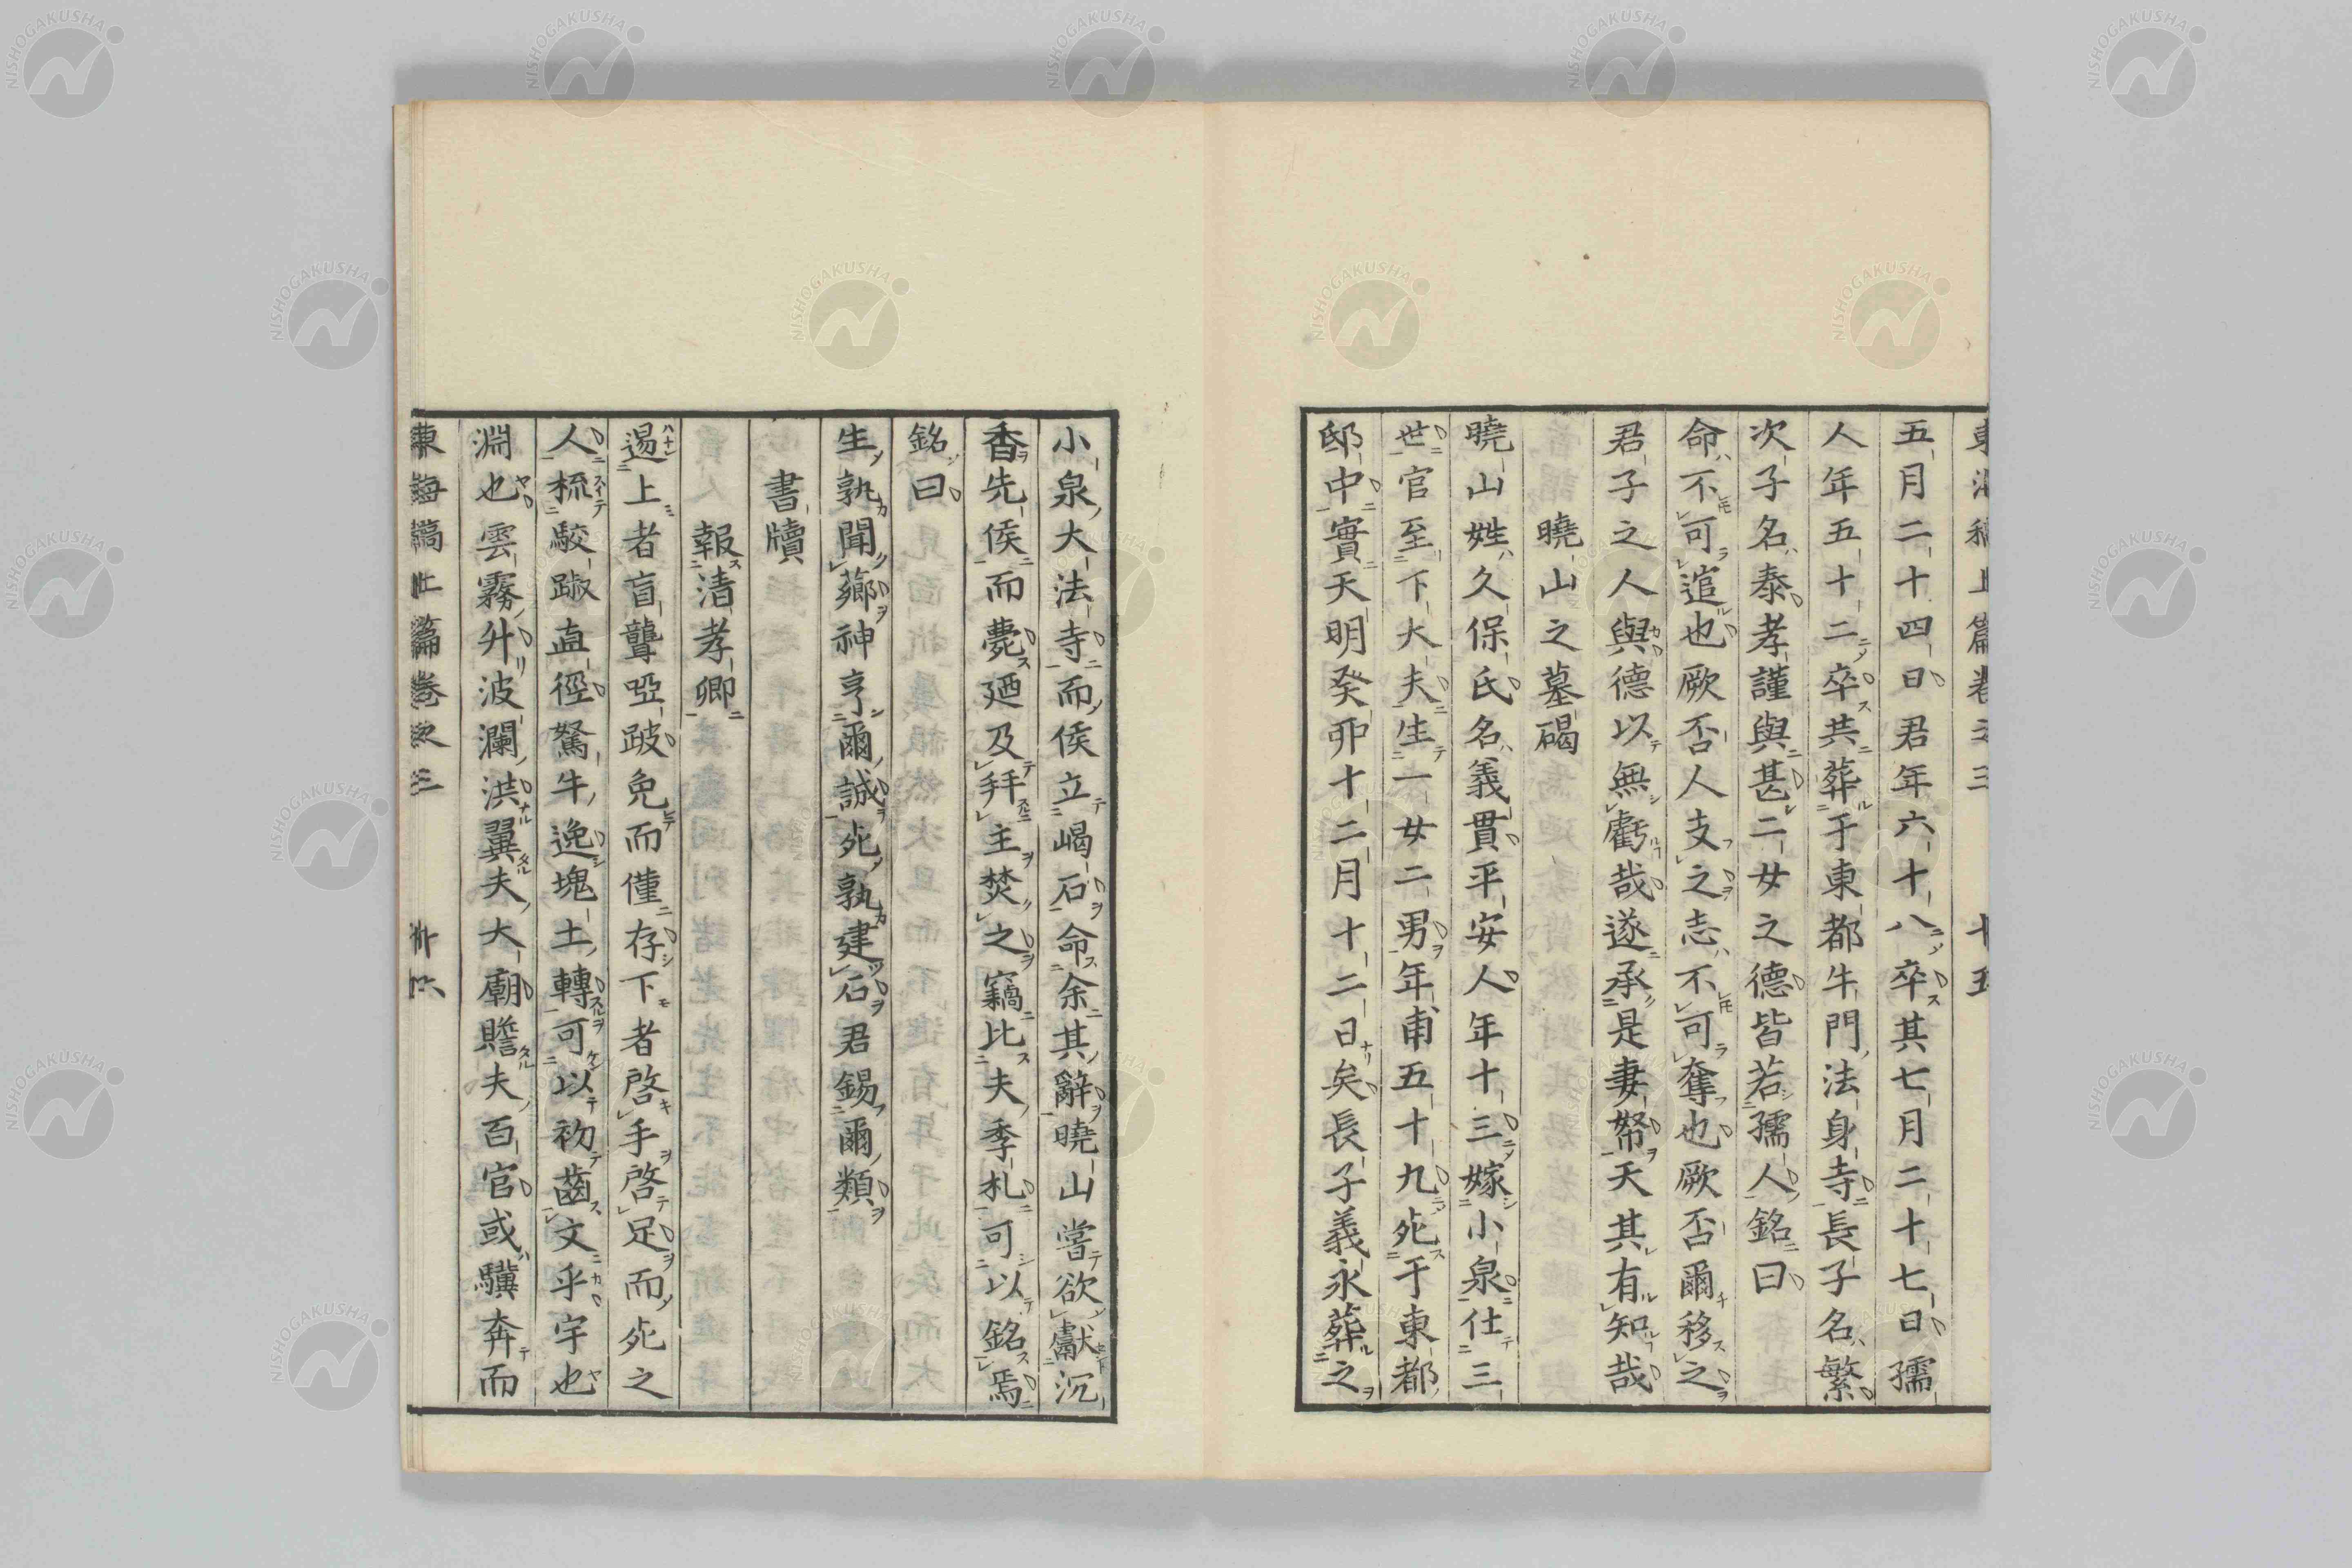 東海稿上篇卷之三 十五
五月二十四日君年六十八卒其七月二十七日孺
人年五十二卒共葬于東都牛門法身寺長子名繁
次子名泰孝謹與甚二女之德皆若孺人銘曰
命不可追也厥否人支之志不可奪也厥否爾移之
君子之人與德以無虧哉遂承是妻帑天其有知哉
曉山之墓碣
曉山姓久保氏名義貫平安人年十三嫁小泉仕三
世官至下大夫生一女二男年甫五十九死于東都
邸中實天明癸卯十二月十二日矣長子義永葬之
小泉大法寺而侯立碣石命余其辭曉山嘗欲獻沉
香先侯而薨廼及拜主焚之竊比夫季札可以銘焉
銘曰
生孰聞薌神亨爾誠死孰建石君錫爾類
書牘
報清孝卿
逿上者盲聾啞跛免而僅存下者啓手啓足而死之
人梳駮踧直徑駑牛逸塊土轉可以初齒文乎宇也
淵也雲霧升波瀾洪翼夫大廟贍夫百官或驥奔而
東海稿上篇卷之三 十六
NISHOGAKUSHA